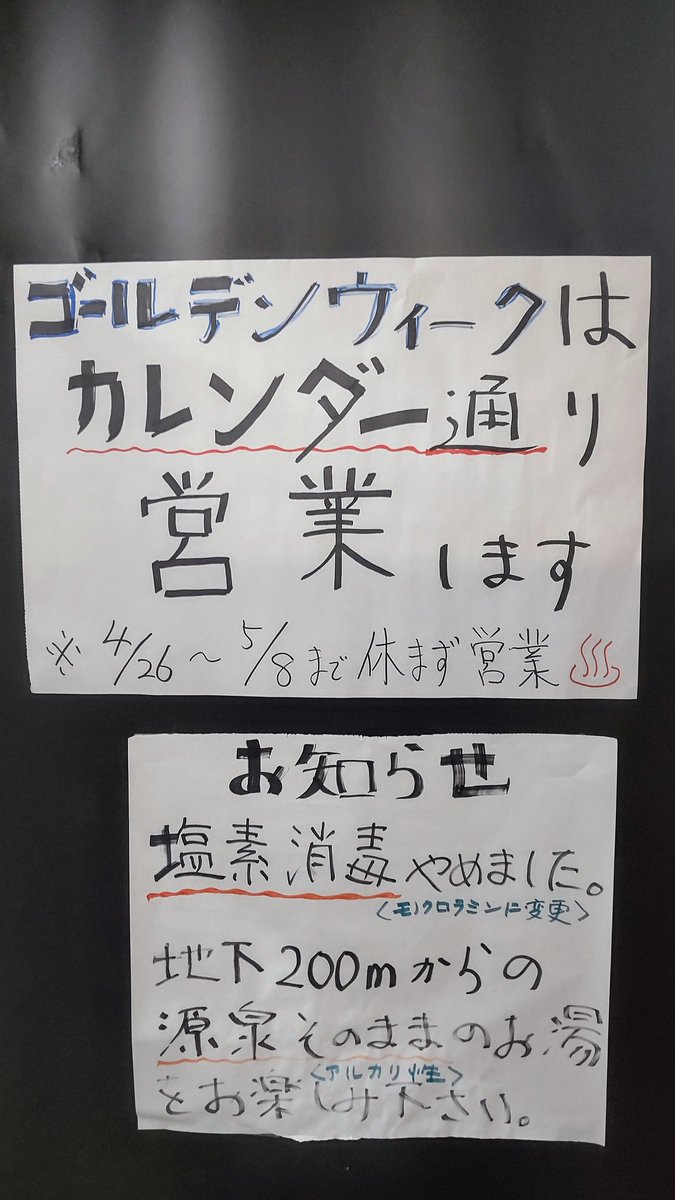 ゴールデンウィークは
カレンダー通り
営業します
※ 4/26〜5/8まで休まず営業♨
お知らせ
塩素消毒やめました。
〈モノクロラミンに変更〉
地下200mからの
源泉そのままのお湯
〈アルカリ性〉
をお楽しみ下さい。